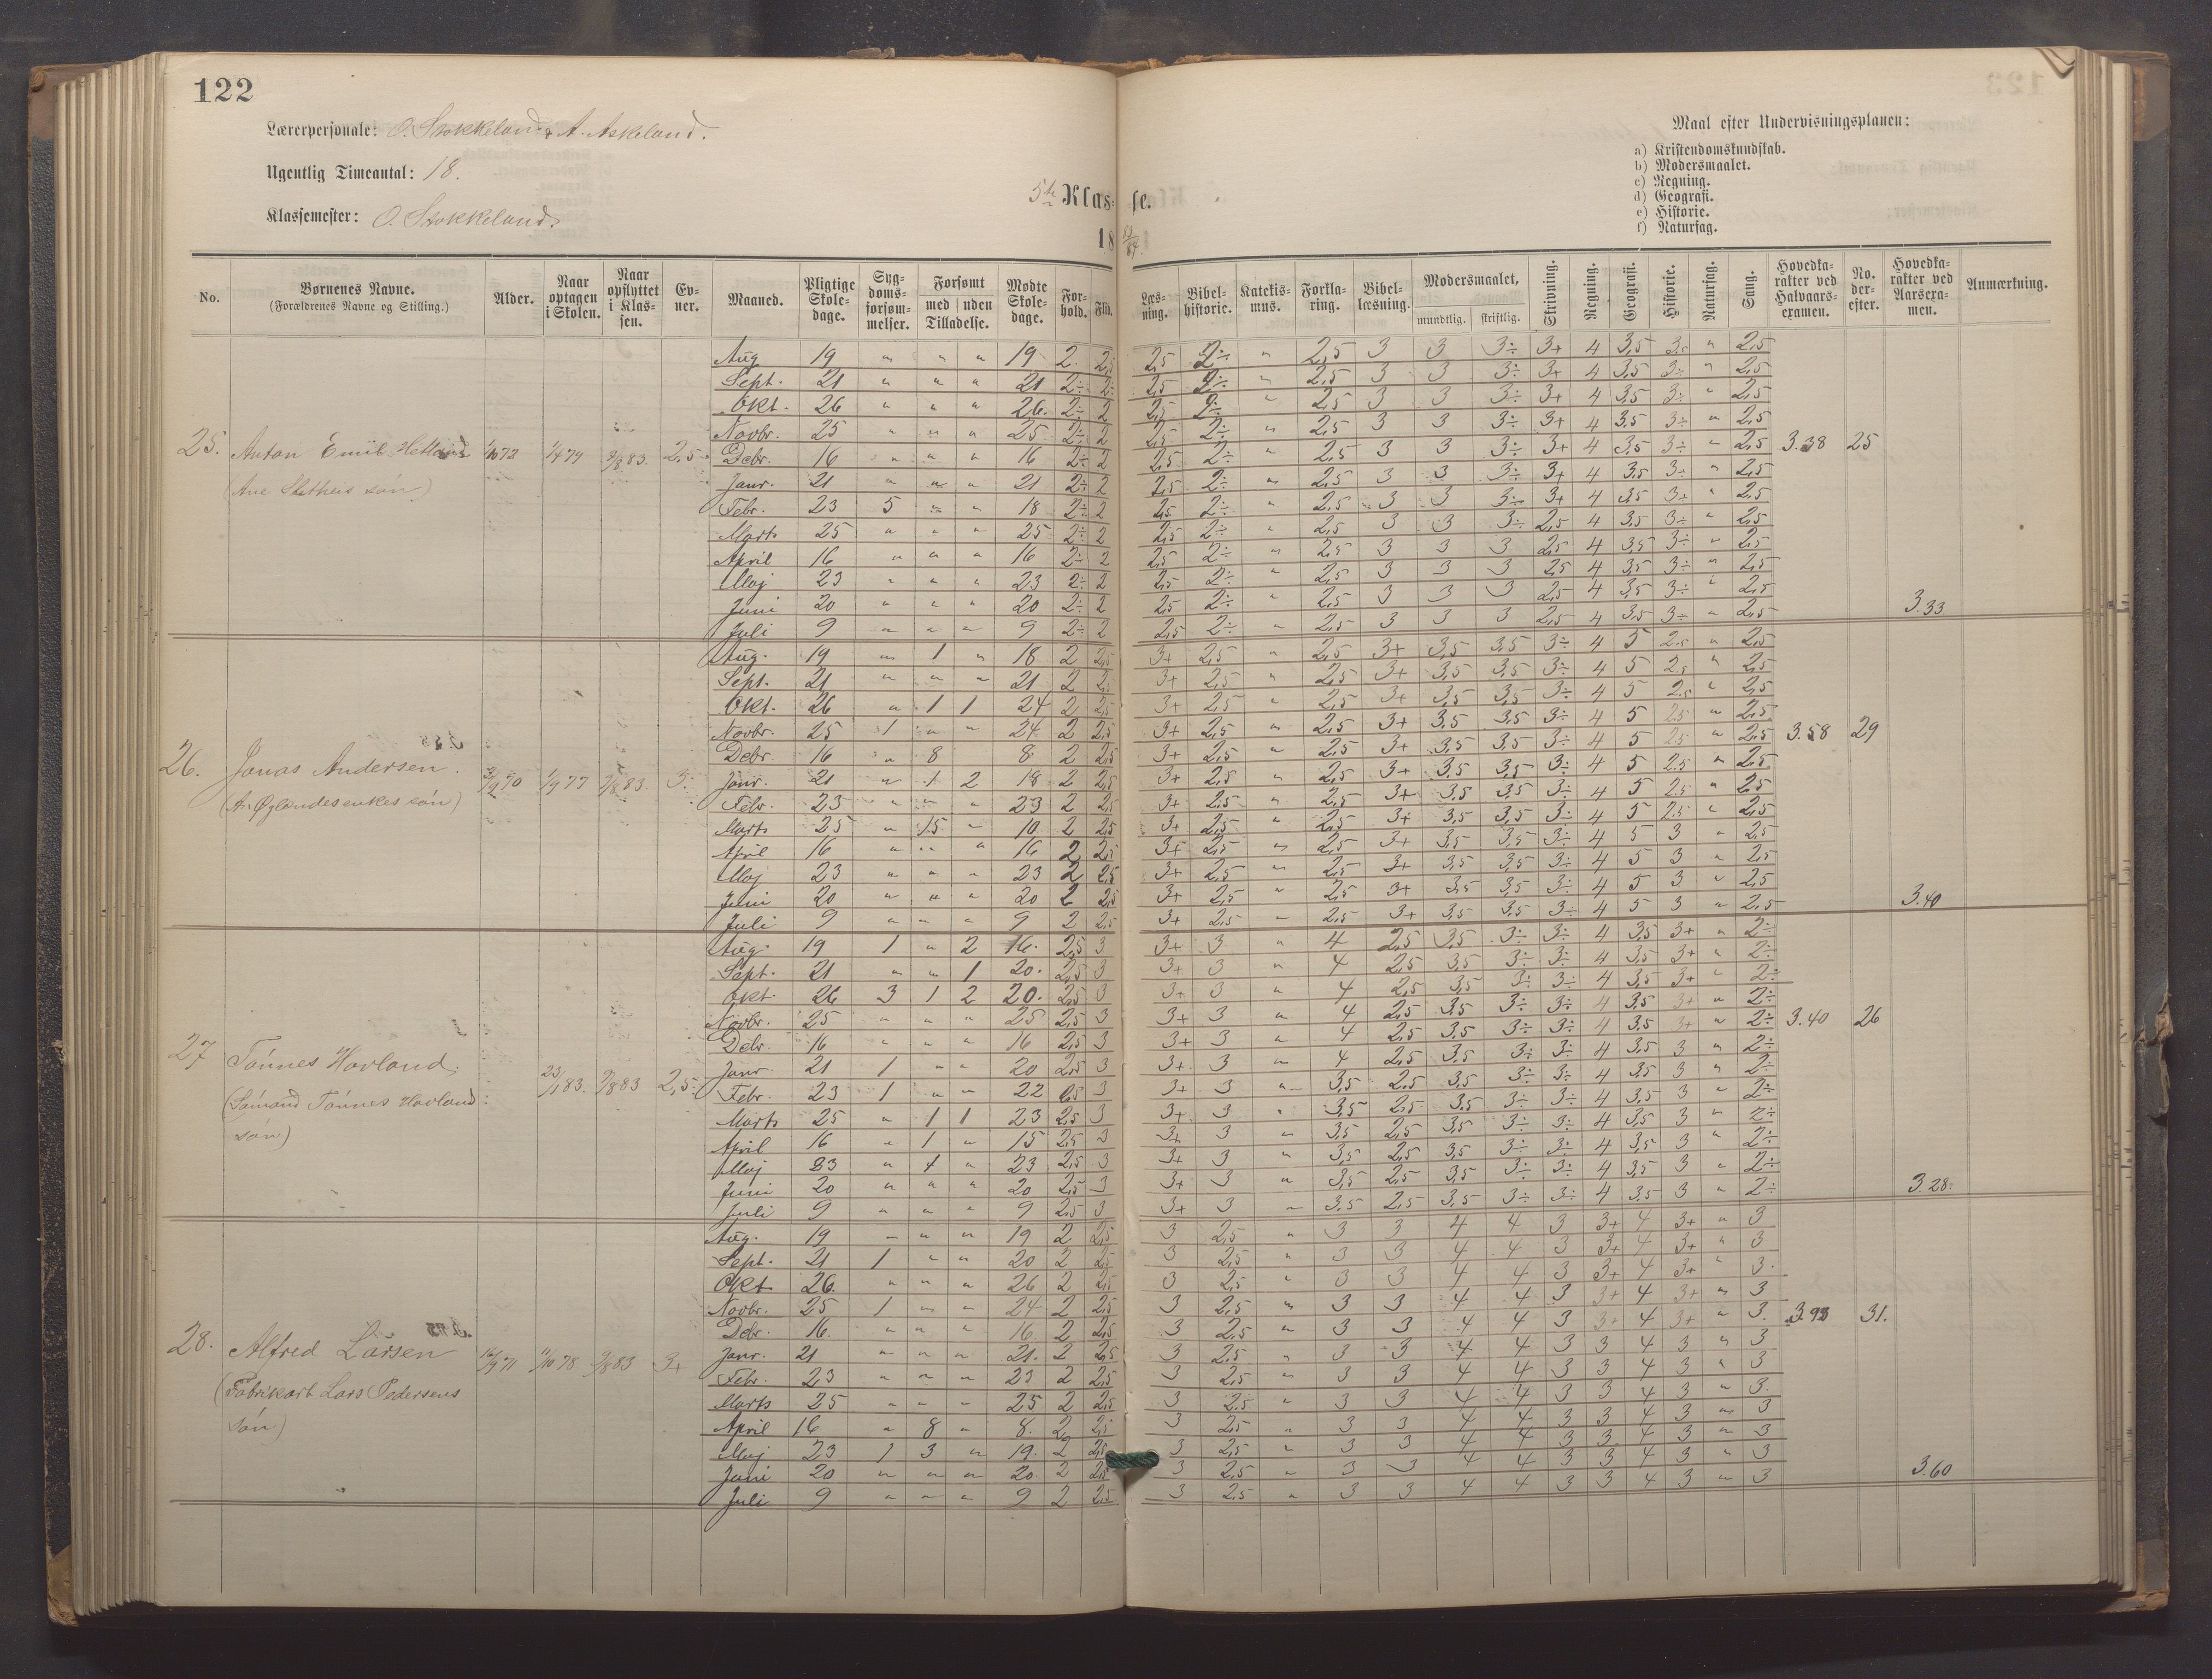 122
Lærerpersonale: O. Stokkeland & A. Askeland.
Ugentlig Timeantal: 18.
Klassemester: O. Stokkeland
5te Klasse.
18 83/84.
Maal efter Undervisningsplanen:
a) Kristendomskundskab.
b) Modersmaalet.
c) Regning.
d) Geografi.
e) Historie.
f) Naturfag.
No. | Børnenes Navne. (Forældrenes Navne og Stilling.) | Alder. | Naar optagen i Skolen. | Naar opflyttet i Klassen. | Evner. | Maaned. | Pligtige Skoledage. | Sygdomsforsømmelser. | Forsømt med Tilladelse. | uden | Mødte Skoledage. | Forhold. | Flid. | Læsning. | Bibelhistorie. | Katekismus. | Forklaring. | Bibellæsning. | Modersmaalet, mundtlig. | skriftlig. | Skrivning. | Regning. | Geografi. | Historie. | Naturfag. | Sang. | Hovedkarakter ved Halvaarsexamen. | No. derefter. | Hovedkarakter ved Aarsexamen. | Anmærkning.
Aug 19 " " " 19 2 2,5 2,5 2÷ " 2,5 3 3 3÷ 3+ 4 3,5 3,5 " 2,5
Sept. 21 " " " 21 2÷ 2÷ 2,5 2÷ " 2,5 3 3 3÷ 3+ 4 3,5 3÷ " 2,5
Okt. 26 " " " 26. 2÷ 2 2,5 2÷ " 2,5 3 3 3÷ 3+ 4 3,5 3÷ " 2,5
Novbr. 25 " " " 25 2÷ 2 2,5 2÷ " 2,5 3 3 3÷ 3+ 4 3,5 3÷ " 2,5
25. Anton Emil Helland 1/10 73 1/4 79 /8 83. 2,5 Debr. 16 " " " 16 2÷ 2 2,5 2÷ " 2,5 3 3 3÷ 3+ 4 3,5 3÷ " 2,5 3.38 25
(Ane søn)
Janr. 21 " " " 21 2÷ 2 2,5 2÷ " 2,5 3 3 3÷ 3+ 4 3,5 3÷ " 2,5
Febr. 23 5 " " 18 2÷ 2 2,5 2÷ " 2,5 3 3 3÷ 3+ 4 3,5 3÷ " 2,5
Marts 25 " " " 25 2÷ 2 2,5 2÷ " 2,5 3 3 3÷ 2,5 4 3,5 3÷ " 2,5
April 16 " " " 16 2÷ 2 2,5 2÷ " 2,5 3 3 3 2,5 4 3,5 3÷ " 2,5
Maj 23 " " " 23 2÷ 2 2,5 2÷ " 2,5 3 3 3 2,5 4 3,5 3÷ " 2,5
Juni 20 " " " 20 2÷ 2 2,5 2÷ " 2,5 3 3 3 2,5 4 3,5 3÷ " 2,5 3.33
Juli 9 " " " 9 2÷ 2 2,5 2÷ " 2,5 3 3 3 2,5 4 3,5 3÷ " 2,5
Aug. 19 " 1 " 18 2 2,5 3+ 2,5 " 2,5 3+ 3,5 3,5 3÷ 4 5 2,5 " 2,5
Sept. 21 " " " 21 2 2,5 3+ 2,5 " 2,5 3+ 3,5 3,5 3÷ 4 5 2,5 " 2,5
Okt. 26 " 1 1 24 2 2,5 3+ 2,5 " 2,5 3+ 3,5 3,5 3÷ 4 5 2,5 " 2,5
Novbr. 25 1 " " 24 2 2,5 3+ 2,5 " 2,5 3+ 3,5 3,5 3÷ 4 5 2,5 " 2,5
Debr. 16 " 8 8 2 2,5 3+ 2,5 " 2,5 3+ 3,5 3,5 3÷ 4 5 2,5 " 2,5 3.58 29
26. Jonas Andersen. 70 1/9 77 /8 83. 3. Janr. 21 " 1 2 18 2 2,5 3+ 2,5 " 2,5 3+ 3,5 3,5 3÷ 4 5 2,5 " 2,5
(A. Øglændes enkes søn)
Febr. 23 " " " 23 2 2,5 3+ 2,5 " 2,5 3+ 3,5 3,5 3÷ 4 5 2,5 " 2,5
Marts 25 " 15 " 10 2 2,5 3+ 2,5 " 2,5 3+ 3,5 3,5 3÷ 4 5 2,5 " 2,5
April 16 " " " 16 2 2,5 3+ 2,5 " 2,5 3+ 3,5 3,5 3÷ 4 5 3 " 2,5
Maj 23 " " " 23 2 2,5 3+ 2,5 " 2,5 3+ 3,5 3,5 3÷ 4 5 3 " 2,5
Juni 20 " " " 20 2 2,5 3+ 2,5 " 2,5 3+ 3,5 3,5 3÷ 4 5 3 " 2,5 3.40
Juli 9 " " " 9 2 2,5 3+ 2,5 " 2,5 3+ 3,5 3,5 3÷ 4 5 3 " 2,5
Aug. 19 1 " 2 16. 2,5 3 3+ 3 " 4 2,5 3,5 3÷ 3÷ 4 3,5 3+ " 2÷
Sept. 21 " " 1 20. 2,5 3 3+ 3 " 4 2,5 3,5 3÷ 3÷ 4 3,5 3+ " 2÷
Okt. 26 3 1 2 20. 2,5 3 3+ 3 " 4 2,5 3,5 3÷ 3÷ 4 3,5 3+ " 2÷
Novbr. 25 " " " 25 2,5 3 3+ 3 " 4 2,5 3,5 3÷ 3÷ 4 3,5 3+ " 2÷
Debr. 16 " " " 16 2,5 3 3+ 3 " 4 2,5 3,5 3÷ 3÷ 4 3,5 3+ " 2÷ 3.40 26
27 Tønnes Hovland. 23/1 83. /8 83 2,5 Janr. 21 1 " " 20 2,5 3 3+ 3 " 4 2,5 3,5 3÷ 3÷ 4 3,5 3 " 2÷
(Sømand Tønnes Hovland
søn)
Febr. 23 1 " " 22 2,5 3 3+ 3 " 3,5 2,5 3,5 3÷ 3÷ 4 3,5 3 " 2÷
Marts 25 " 1 1 23 2,5 3 3+ 3 " 3,5 2,5 3,5 3÷ 3÷ 4 3,5 3 " 2÷
April 16 " 1 " 15 2,5 3 3+ 3 " 3,5 2,5 3,5 3÷ 3÷ 4 3,5 3 " 2÷
Maj 23 " 1 " 23 2,5 3 3+ 3 " 3,5 2,5 3,5 3÷ 3÷ 4 3,5 3 " 2÷
Juni 20 " " " 20 2,5 3 3+ 3 " 3,5 2,5 3,5 3÷ 3÷ 4 3,5 3 " 2÷ 3.28.
Juli 9 " " " 9 2,5 3 3+ 3 " 3,5 2,5 3,5 3÷ 3÷ 4 3,5 3 " 2÷
Aug. 19 " " " 19 2 2,5 3 2,5 " 3 3 4 4 3 3+ 4 3+ " 3
Sept. 21 1 " " 20 2 2,5 3 2,5 " 3 3 4 4 3 3+ 4 3+ " 3
Okt 26. " " " 26 2 2,5 3 2,5 " 3 3 4 4 3 3+ 4 3+ " 3.
Novbr. 25 1 " " 24 2 2,5 3 2,5 " 3 3 4 4 3 3+ 4 3+ " 3
Debr. 16. " " " 16. 2 2,5 3 2,5 " 3 3 4 4 3 3+ 4 3+ " 3. 3.93 31.
28. Alfred Larsen 16/9 71 1/10 78 /8 83 3+ Janr. 21 " " " 21. 2 2,5 3 2,5 " 3 3 4 4 3 3 4 3 " 3
(Fabrikarb Lars Pedersens
søn)
Febr. 23 " " " 23 2 2,5 3 2,5 " 3 3 4 4 3 3 4 3 " 3
Marts 25 " " " 25 2 2,5 3 2,5 " 3 3 4 4 3 3 4 3 " 3.
April 16 " 8 " 8. 2 2,5 3 2,5 " 3 3 4 4 3 3 4 3 " 3
Maj 23 1 3 " 19. 2 2,5 3 2,5 " 3 3 4 4 3 3 4 3 " 3
Juni 20 " " " 20 2 2,5 3 2,5 " 3 3 4 4 3 3 4 3 " 3 3.60
Juli 9 " " " 9 2 2,5 3 2,5 " 3 3 4 4 3 3 4 3 " 3